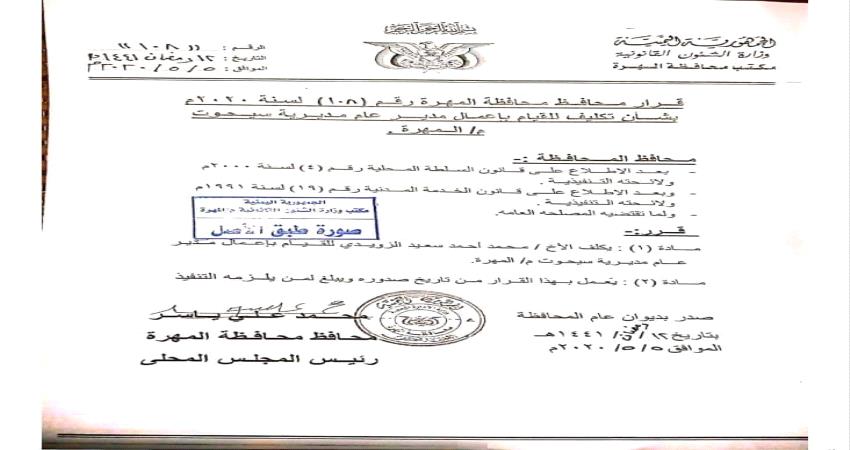 بسم الله الرحمن الرحيم
الجمهورية اليمنية
وزارة الشئون القانونية
مكتب محافظة المهرة
الرقم : (( ١٠٨ ))
التاريخ : ١٢ رمضان ١٤٤١هـ
الموافق : ٥ / ٥ / ٢٠٢٠م
قرار محافظ محافظة المهرة رقم (١٠٨) لسنة ٢٠٢٠م
بشأن تكليف للقيام بإعمال مدير عام مديرية سيحوت
م/ المهرة .
محافظ المحافظة :-
- بعد الاطلاع على قانون السلطة المحلية رقم (٤) لسنة ٢٠٠٠م
ولائحته التنفيذية .
- وبعد الاطلاع على قانون الخدمة المدنية رقم (١٩) لسنة ١٩٩١م
ولائحته التنفيذية .
- ولما تقتضيه المصلحه العامه.
الجمهورية اليمنية
مكتب وزارة الشئون القانونية م/المهرة
صورة طبق الأصل
قرر:-
مادة (١) : يكلف الأخ / محمد احمد سعيد الزويدي للقيام بإعمال مدير
عام مديرية سيحوت م/ المهرة.
مادة (٢) : يعمل بهذا القرار من تاريخ صدوره ويبلغ لمن يلزمه التنفيذ
صدر بديوان عام المحافظة
بتاريخ ١٢/ /١٤٤١هـ
الموافق ٥/ ٥/ ٢٠٢٠م
محمد علي ياسر
محافظ محافظة المهرة
رئيس المجلس المحلى